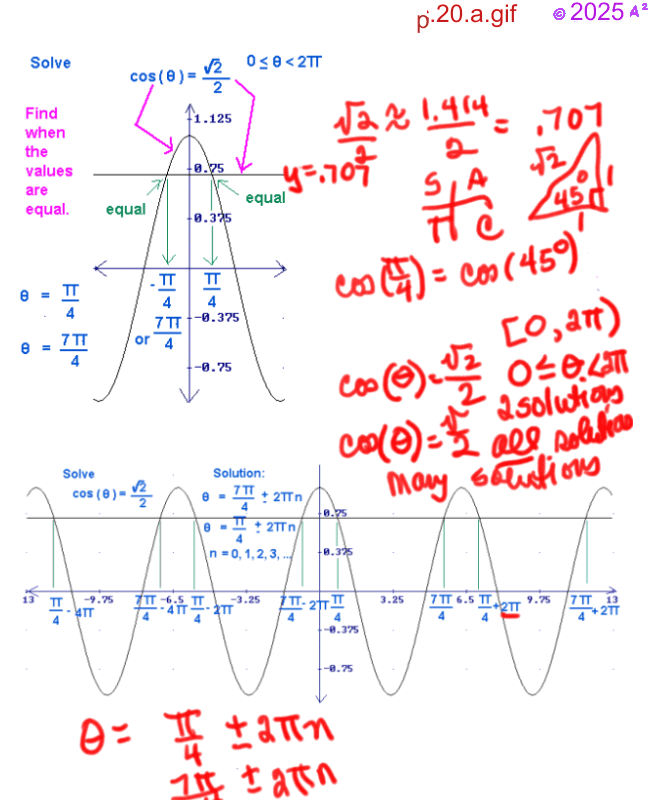 p.20.a.gif © 2025 A²
Solve
cos(θ) = √2/2 0 ≤ θ < 2π
Find
when
the
values
are
equal.
1.125
0.75
0.375
-0.375
-0.75
equal
equal
-π/4 π/4
or 7π/4
θ = π/4
θ = 7π/4
√2/2 ≈ 1.414/2 = .707
y=.707
S A
T C
√2 1
45°
1
cos(π/4) = cos(45°)
[0, 2π)
cos(θ) = √2/2 0 ≤ θ < 2π
2 solutions
cos(θ) = √/2 all solutions
many solutions
Solve
cos(θ) = √2/2
Solution:
θ = 7π/4 ± 2πn
θ = π/4 ± 2πn
n = 0, 1, 2, 3, ...
0.75
0.375
13 -9.75 -6.5 -3.25 3.25 6.5 9.75 13
π/4 - 4π 7π/4 - 4π π/4 - 2π 7π/4 - 2π π/4 7π/4 π/4 + 2π 7π/4 + 2π
-0.375
-0.75
θ = π/4 ± 2πn
7π/4 ± 2πn